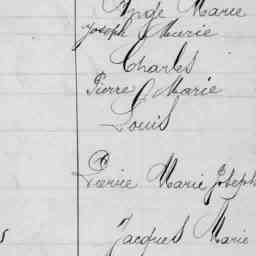 Ange Marie
Joseph Marie
Charles
Pierre Marie
Louis
Pierre Marie Joseph
Jacques Marie